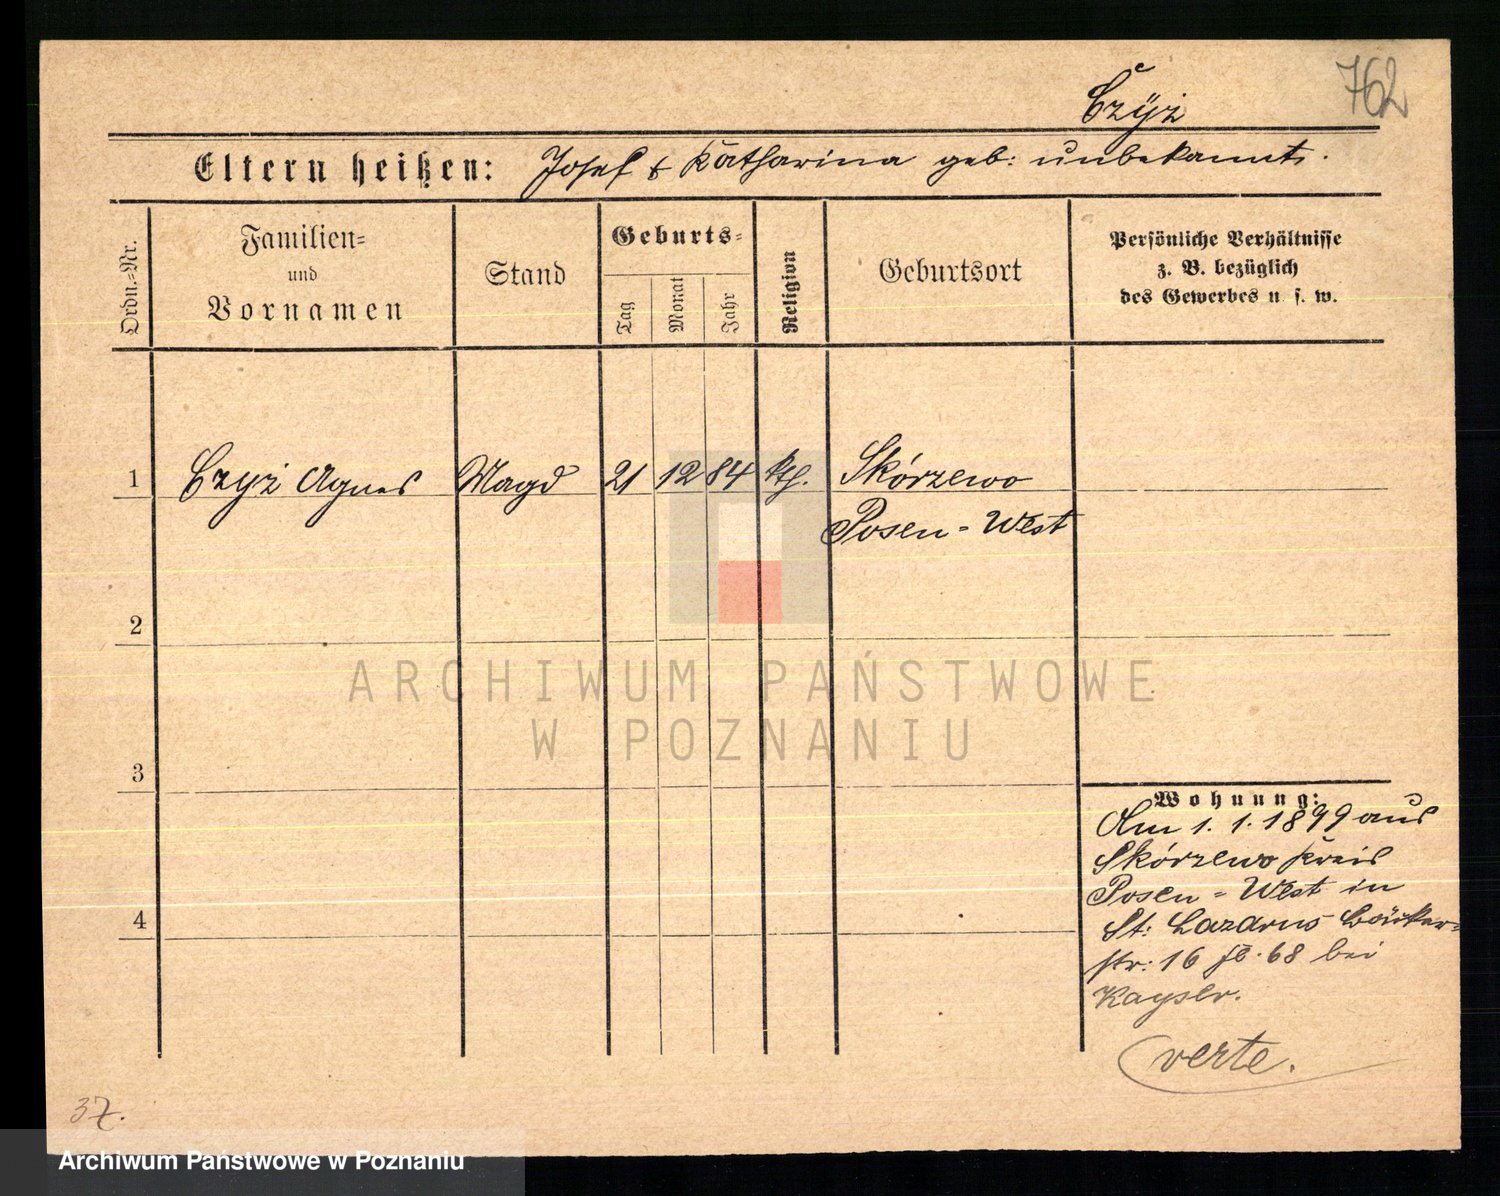 762
Czÿż
Eltern heißen: Josef & Katharina geb: unbekannt.
Ordn.-Nr.
Familien-
und
Vornamen
Stand
Geburts-
Tag
Monat
Jahr
Religion
Geburtsort
Persönliche Verhältnisse
z. B. bezüglich
des Gewerbes u. s. w.
1 Czyż Agnes Magd 21 12 84 kth. Skórzewo
Posen-West
2
ARCHIWUM PAŃSTWOWE
W POZNANIU
3
Wohnung:
Am 1. 1. 1899 aus
Skórzewo Kreis
Posen-West in
4
St: Lazarus
str: 16 68 bei
Kaysler.
verte.
37.
Archiwum Państwowe w Poznaniu